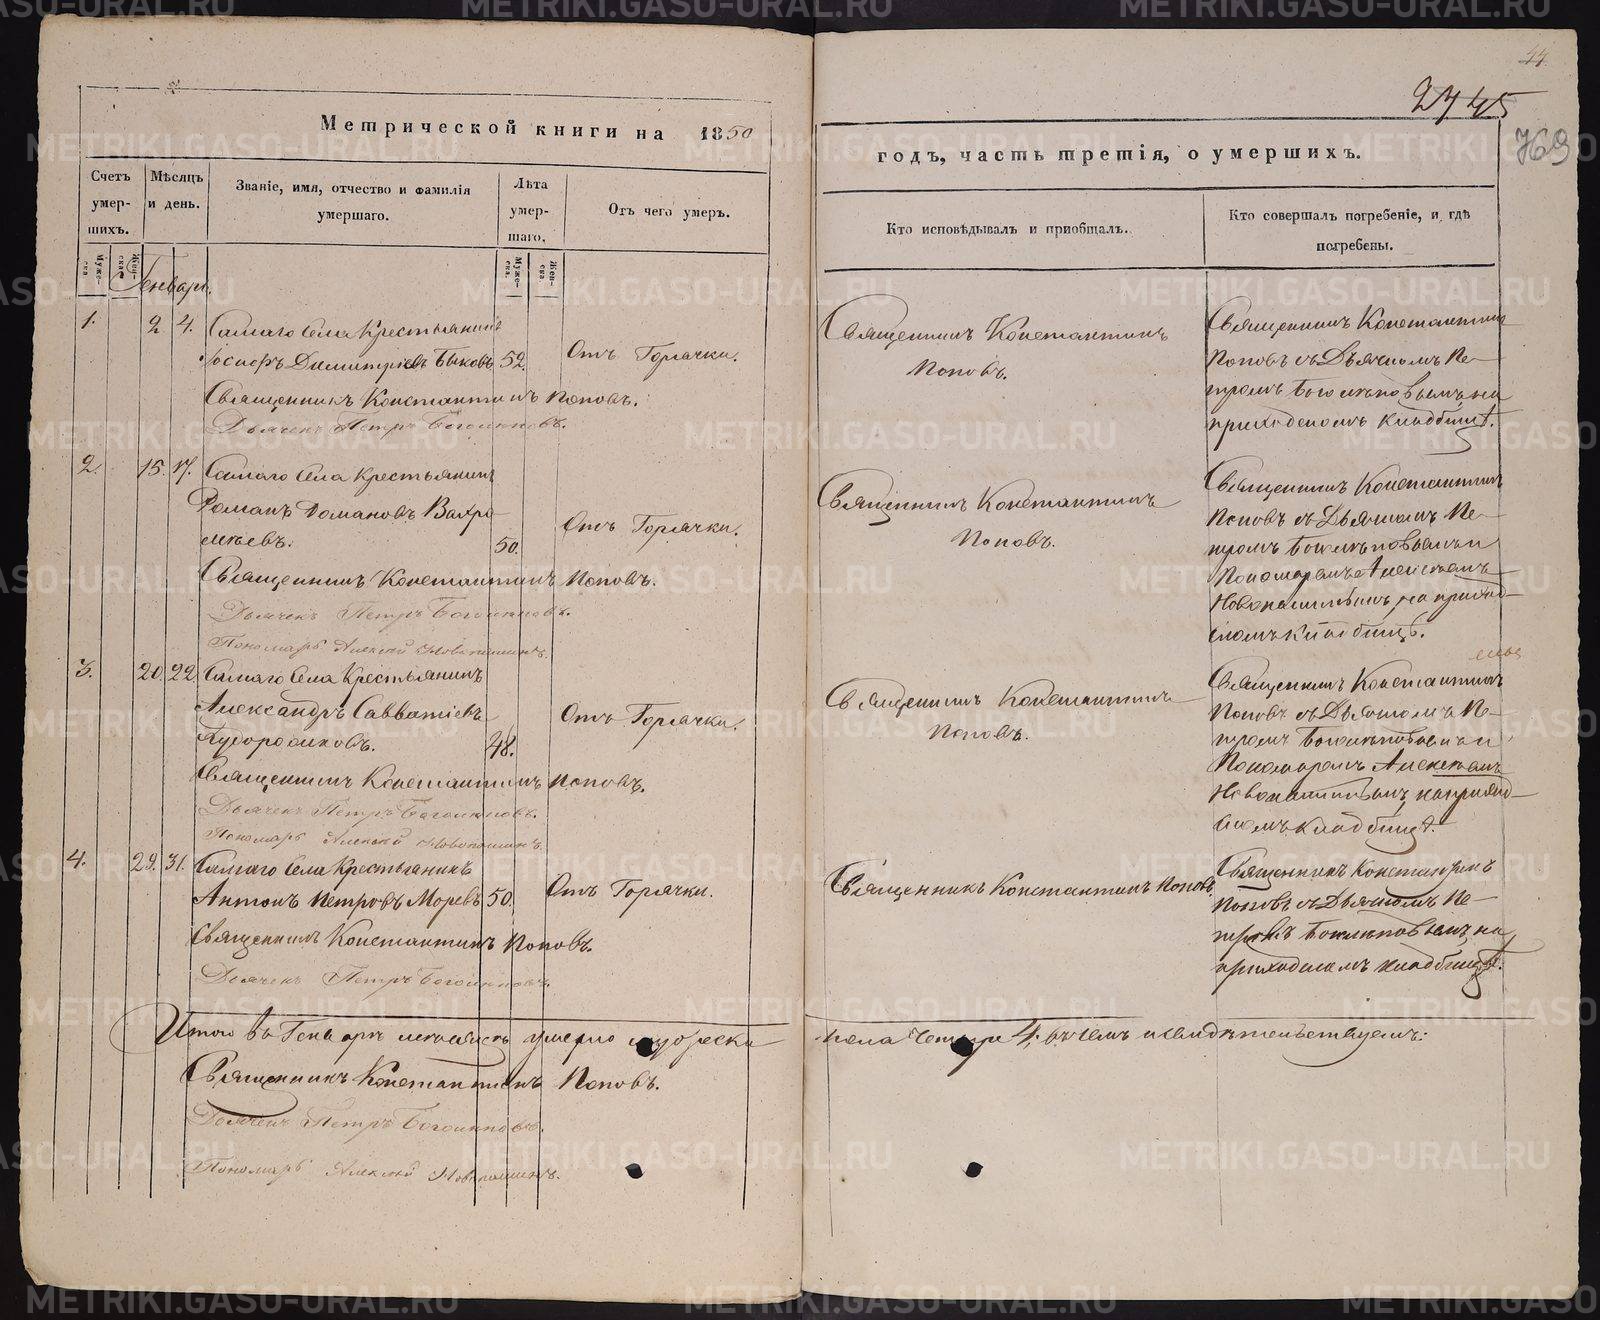 44.
2745
769
Метрической книги на 1850
годъ, часть третія, о умершихъ.
Счетъ умер-шихъ.
Мѣсяцъ и день.
Званіе, имя, отчество и фамилія умершаго.
Лѣта умер-шаго.
Отъ чего умеръ.
Кто исповѣдывалъ и пріобщалъ.
Кто совершалъ погребеніе, и гдѣ погребены.
Муже-ска
Жен-ска
Муже-ска.
Жен-ска
Генварь.
1. 2. 4. Самаго Села Крестьянинъ
Іосифъ Димитріевъ Быковъ 52. Отъ Горячки.
Священникъ Константинъ Поповъ.
Дьячекъ Петръ
Священникъ Константинъ
Поповъ.
Священникъ Константинъ
Поповъ съ Дьячкомъ Пе-
тромъ на
приходскомъ кладбищѣ.
2. 15. 17. Самаго Села Крестьянинъ
Романъ Романовъ Вахро-
мѣевъ. 50. Отъ Горячки.
Священникъ Константинъ Поповъ.
Дьячекъ Петръ
Пономарь Алексѣй
Священникъ Константинъ
Поповъ.
Священникъ Константинъ
Поповъ съ Дьячкомъ Пе-
тромъ и
Пономаремъ Алексѣемъ
на приход-
скомъ кладбищѣ.
3. 20. 22. Самаго Села Крестьянинъ
Александръ Савватіевъ
48. Отъ Горячки.
Священникъ Константинъ Поповъ.
Дьячекъ Петръ
Пономарь Алексѣй
Священникъ Константинъ
Поповъ.
Священникъ Константинъ
Поповъ съ Дьячкомъ Пе-
тромъ и
Пономаремъ Алексѣемъ
на приход-
скомъ кладбищѣ.
4. 29. 31. Самаго Села Крестьянинъ
Антонъ Петровъ Моревъ 50. Отъ Горячки.
Священникъ Константинъ Поповъ.
Дьячекъ Петръ
Священникъ Константинъ Поповъ.
Священникъ Константинъ
Поповъ съ Дьячкомъ Пе-
тромъ на
приходскомъ кладбищѣ.
Итого въ Генварѣ мѣсяцѣ умерло мужеска
пола Четыре 4, въ чемъ и свидѣтельствуемъ:
Священникъ Константинъ Поповъ.
Дьячекъ Петръ
Пономарь Алексѣй
METRIKI.GASO-URAL.RU